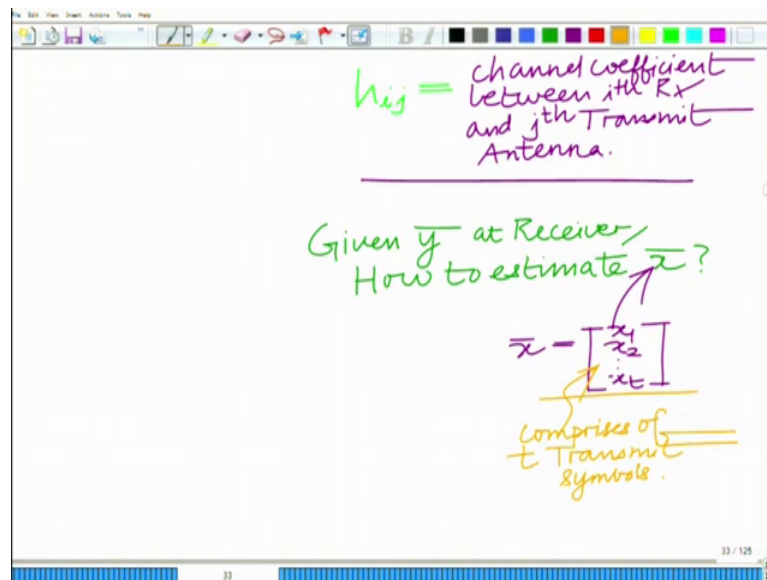 File Edit View Insert Actions Tools Help
B I
hij = channel coefficient
between ith Rx
and jth Transmit
Antenna.
Given y̅ at Receiver,
How to estimate x̅ ?
x̅ = [ x1
x2
⋮
xt ]
comprises of
t Transmit
symbols.
33 / 125
33